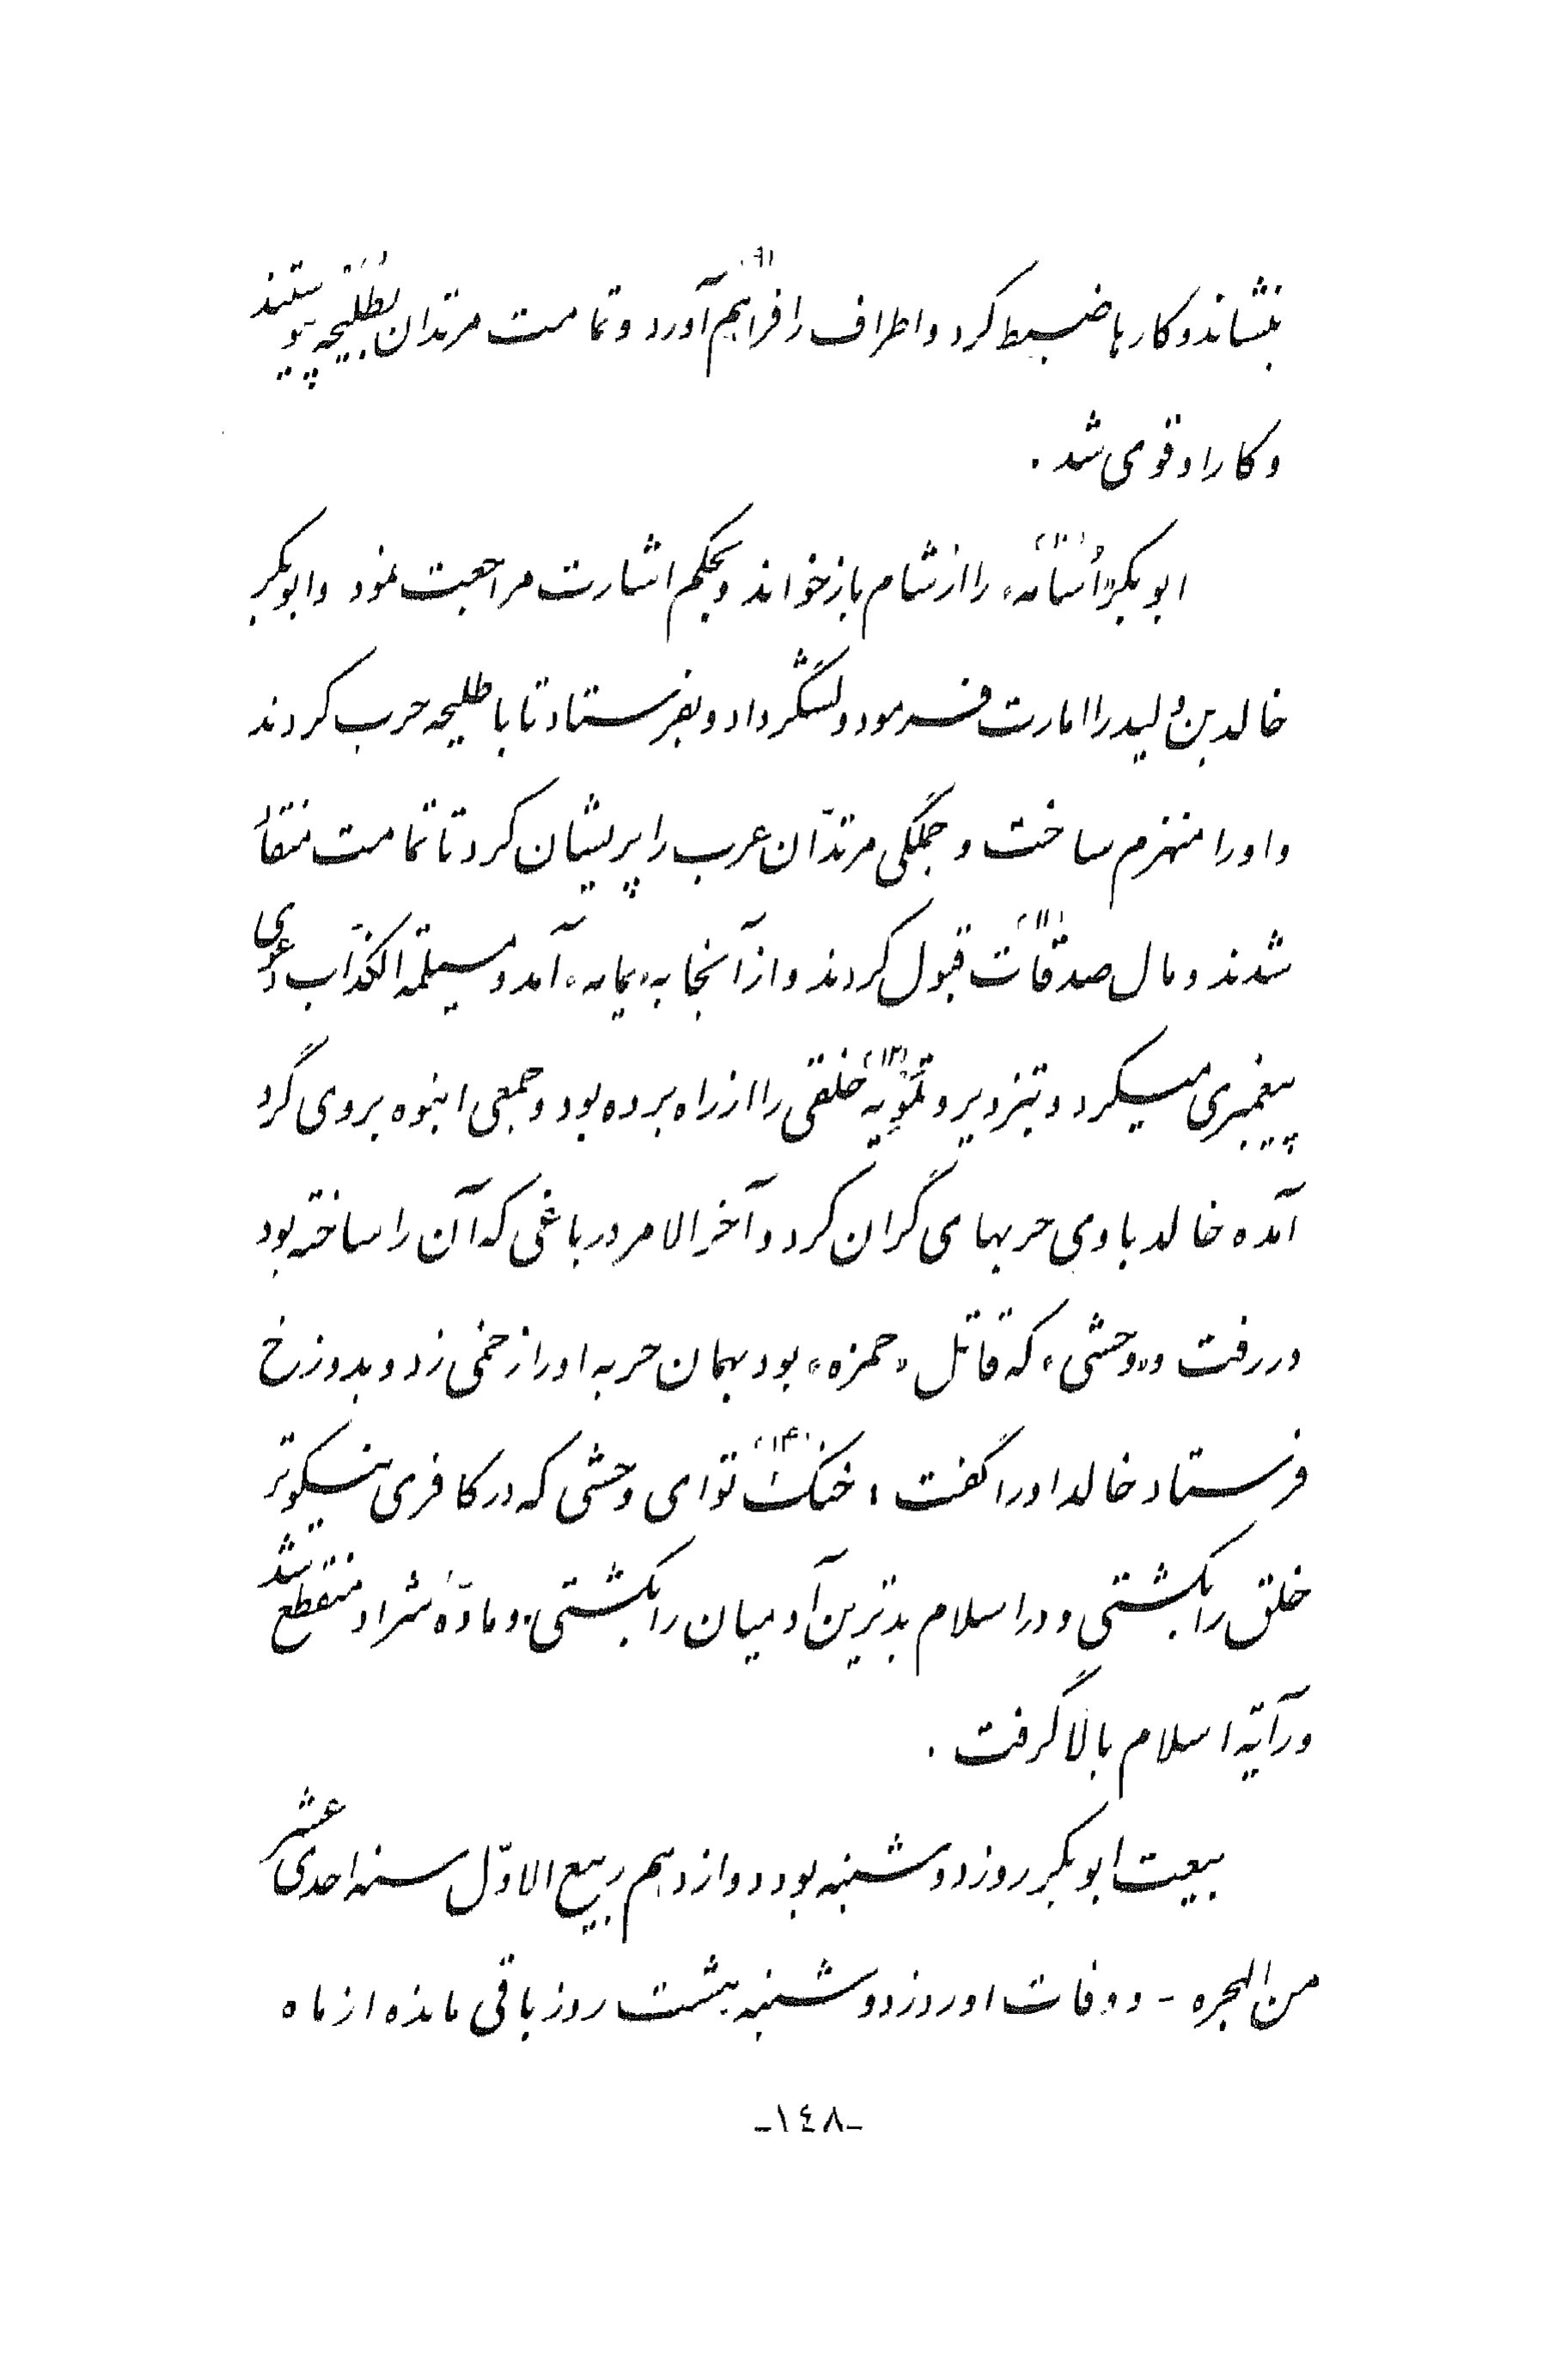 بنشاند و کارها ضبط کرد و اطراف را فراهم (۹) آورد و تمامت مرتدان بطُلَیحه پیوستند
و کار او قوی شد .
ابوبکر «اُسامَه» (۱۰) را از شام بازخواند و بحکم اشارت مراجعت نمود و ابوبکر
خالد بن ولید را امارت فرمود و لشگر داد و بفرستاد تا با طلیحه حرب کردند
و او را منهزم ساخت و جملگی مرتدّان عرب را پریشان کرد تا تمامت منقاد
شدند و مال صدقات (۱۱) قبول کردند و از آنجا به «یمامه» آمد و مسیلمة الکذّاب دعوی
پیغمبری میکرد و بتزویر و تَمْوِیه (۱۲) خلقی را از راه برده بود و جمعی انبوه بروی گرد
آمده خالد با وی حربهای گران کرد و آخر الامر در باغی که آن را ساخته بود
در رفت و «وحشی» که قاتل «حمزه» بود بهمان حربه او را زخمی زد و بدوزخ
فرستاد خالد او را گفت : خنک (۱۳) تو ای وحشی که در کافری نیکوتر
خلق را بکشتی و در اسلام بدترین آدمیان را بکشتی. و مادّهٔ شر او منقطع شد
و رآیة اسلام بالا گرفت .
بیعت ابوبکر روز دوشنبه بود دوازدهم ربیع الاوّل سنه احدی عشر
من الهجره - و وفات او روز دوشنبه هشت روز باقی مانده از ماه
-١٤٨-